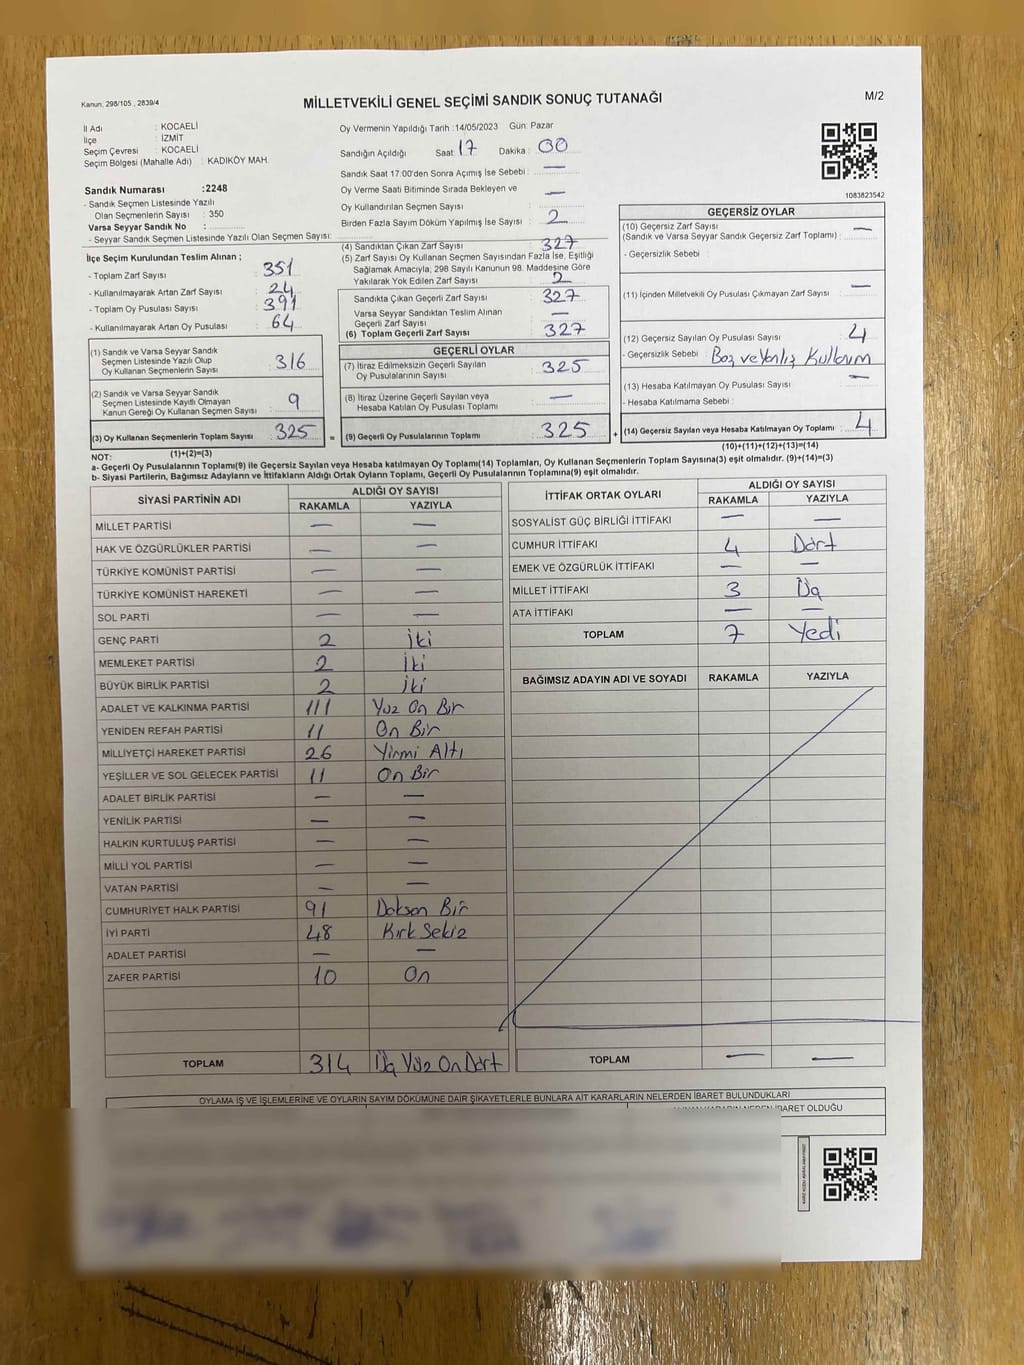 Kanun, 298/105 , 2839/4
MİLLETVEKİLİ GENEL SEÇİMİ SANDIK SONUÇ TUTANAĞI
M/2
İl Adı : KOCAELİ
İlçe : İZMİT
Seçim Çevresi : KOCAELİ
Seçim Bölgesi (Mahalle Adı) : KADIKÖY MAH.
Sandık Numarası :2248
- Sandık Seçmen Listesinde Yazılı
Olan Seçmenlerin Sayısı : 350
Varsa Seyyar Sandık No :
- Seyyar Sandık Seçmen Listesinde Yazılı Olan Seçmen Sayısı:
Oy Vermenin Yapıldığı Tarih :14/05/2023 Gün: Pazar
Sandığın Açıldığı Saat : 17 Dakika : 00
Sandık Saat 17:00'den Sonra Açımış İse Sebebi : —
Oy Verme Saati Bitiminde Sırada Bekleyen ve
Oy Kullandırılan Seçmen Sayısı : —
Birden Fazla Sayım Döküm Yapılmış İse Sayısı : 2
1083823542
İlçe Seçim Kurulundan Teslim Alınan ;
- Toplam Zarf Sayısı : 351
- Kullanılmayarak Artan Zarf Sayısı : 24
- Toplam Oy Pusulası Sayısı : 391
- Kullanılmayarak Artan Oy Pusulası : 64
(1) Sandık ve Varsa Seyyar Sandık
Seçmen Listesinde Yazılı Olup
Oy Kullanan Seçmenlerin Sayısı : 316
(2) Sandık ve Varsa Seyyar Sandık
Seçmen Listesinde Kayıtlı Olmayan
Kanun Gereği Oy Kullanan Seçmen Sayısı : 9
(3) Oy Kullanan Seçmenlerin Toplam Sayısı : 325
(4) Sandıktan Çıkan Zarf Sayısı : 327
(5) Zarf Sayısı Oy Kullanan Seçmen Sayısından Fazla İse, Eşitliği
Sağlamak Amacıyla; 298 Sayılı Kanunun 98. Maddesine Göre
Yakılarak Yok Edilen Zarf Sayısı : 2
Sandıkta Çıkan Geçerli Zarf Sayısı : 327
Varsa Seyyar Sandıktan Teslim Alınan
Geçerli Zarf Sayısı : —
(6) Toplam Geçerli Zarf Sayısı : 327
GEÇERLİ OYLAR
(7) İtiraz Edilmeksizin Geçerli Sayılan
Oy Pusulalarının Sayısı : 325
(8) İtiraz Üzerine Geçerli Sayılan veya
Hesaba Katılan Oy Pusulası Toplamı : —
= (9) Geçerli Oy Pusulalarının Toplamı : 325 +
GEÇERSİZ OYLAR
(10) Geçersiz Zarf Sayısı
(Sandık ve Varsa Seyyar Sandık Geçersiz Zarf Toplamı) : —
- Geçersizlik Sebebi :
(11) İçinden Milletvekili Oy Pusulası Çıkmayan Zarf Sayısı : —
(12) Geçersiz Sayılan Oy Pusulası Sayısı : 4
- Geçersizlik Sebebi : Boş ve Yanlış Kullanım
(13) Hesaba Katılmayan Oy Pusulası Sayısı : —
- Hesaba Katılmama Sebebi :
(14) Geçersiz Sayılan veya Hesaba Katılmayan Oy Toplamı : 4
(1)+(2)=(3)
(10)+(11)+(12)+(13)=(14)
NOT:
a- Geçerli Oy Pusulalarının Toplamı(9) ile Geçersiz Sayılan veya Hesaba katılmayan Oy Toplamı(14) Toplamları, Oy Kullanan Seçmenlerin Toplam Sayısına(3) eşit olmalıdır. (9)+(14)=(3)
b- Siyasi Partilerin, Bağımsız Adayların ve İttifakların Aldığı Ortak Oyların Toplamı, Geçerli Oy Pusulalarının Toplamına(9) eşit olmalıdır.
SİYASİ PARTİNİN ADI ALDIĞI OY SAYISI
RAKAMLA YAZIYLA
MİLLET PARTİSİ — —
HAK VE ÖZGÜRLÜKLER PARTİSİ — —
TÜRKİYE KOMÜNİST PARTİSİ — —
TÜRKİYE KOMÜNİST HAREKETİ — —
SOL PARTİ — —
GENÇ PARTİ 2 İki
MEMLEKET PARTİSİ 2 İki
BÜYÜK BİRLİK PARTİSİ 2 İki
ADALET VE KALKINMA PARTİSİ 111 Yüz On Bir
YENİDEN REFAH PARTİSİ 11 On Bir
MİLLİYETÇİ HAREKET PARTİSİ 26 Yirmi Altı
YEŞİLLER VE SOL GELECEK PARTİSİ 11 On Bir
ADALET BİRLİK PARTİSİ — —
YENİLİK PARTİSİ — —
HALKIN KURTULUŞ PARTİSİ — —
MİLLİ YOL PARTİSİ — —
VATAN PARTİSİ — —
CUMHURİYET HALK PARTİSİ 91 Doksan Bir
İYİ PARTİ 48 Kırk Sekiz
ADALET PARTİSİ — —
ZAFER PARTİSİ 10 On
TOPLAM 314 Üç Yüz On Dört
İTTİFAK ORTAK OYLARI ALDIĞI OY SAYISI
RAKAMLA YAZIYLA
SOSYALİST GÜÇ BİRLİĞİ İTTİFAKI — —
CUMHUR İTTİFAKI 4 Dört
EMEK VE ÖZGÜRLÜK İTTİFAKI — —
MİLLET İTTİFAKI 3 Üç
ATA İTTİFAKI — —
TOPLAM 7 Yedi
BAĞIMSIZ ADAYIN ADI VE SOYADI RAKAMLA YAZIYLA
TOPLAM — —
OYLAMA İŞ VE İŞLEMLERİNE VE OYLARIN SAYIM DÖKÜMÜNE DAİR ŞİKAYETLERLE BUNLARA AİT KARARLARIN NELERDEN İBARET BULUNDUKLARI
İBARET OLDUĞU